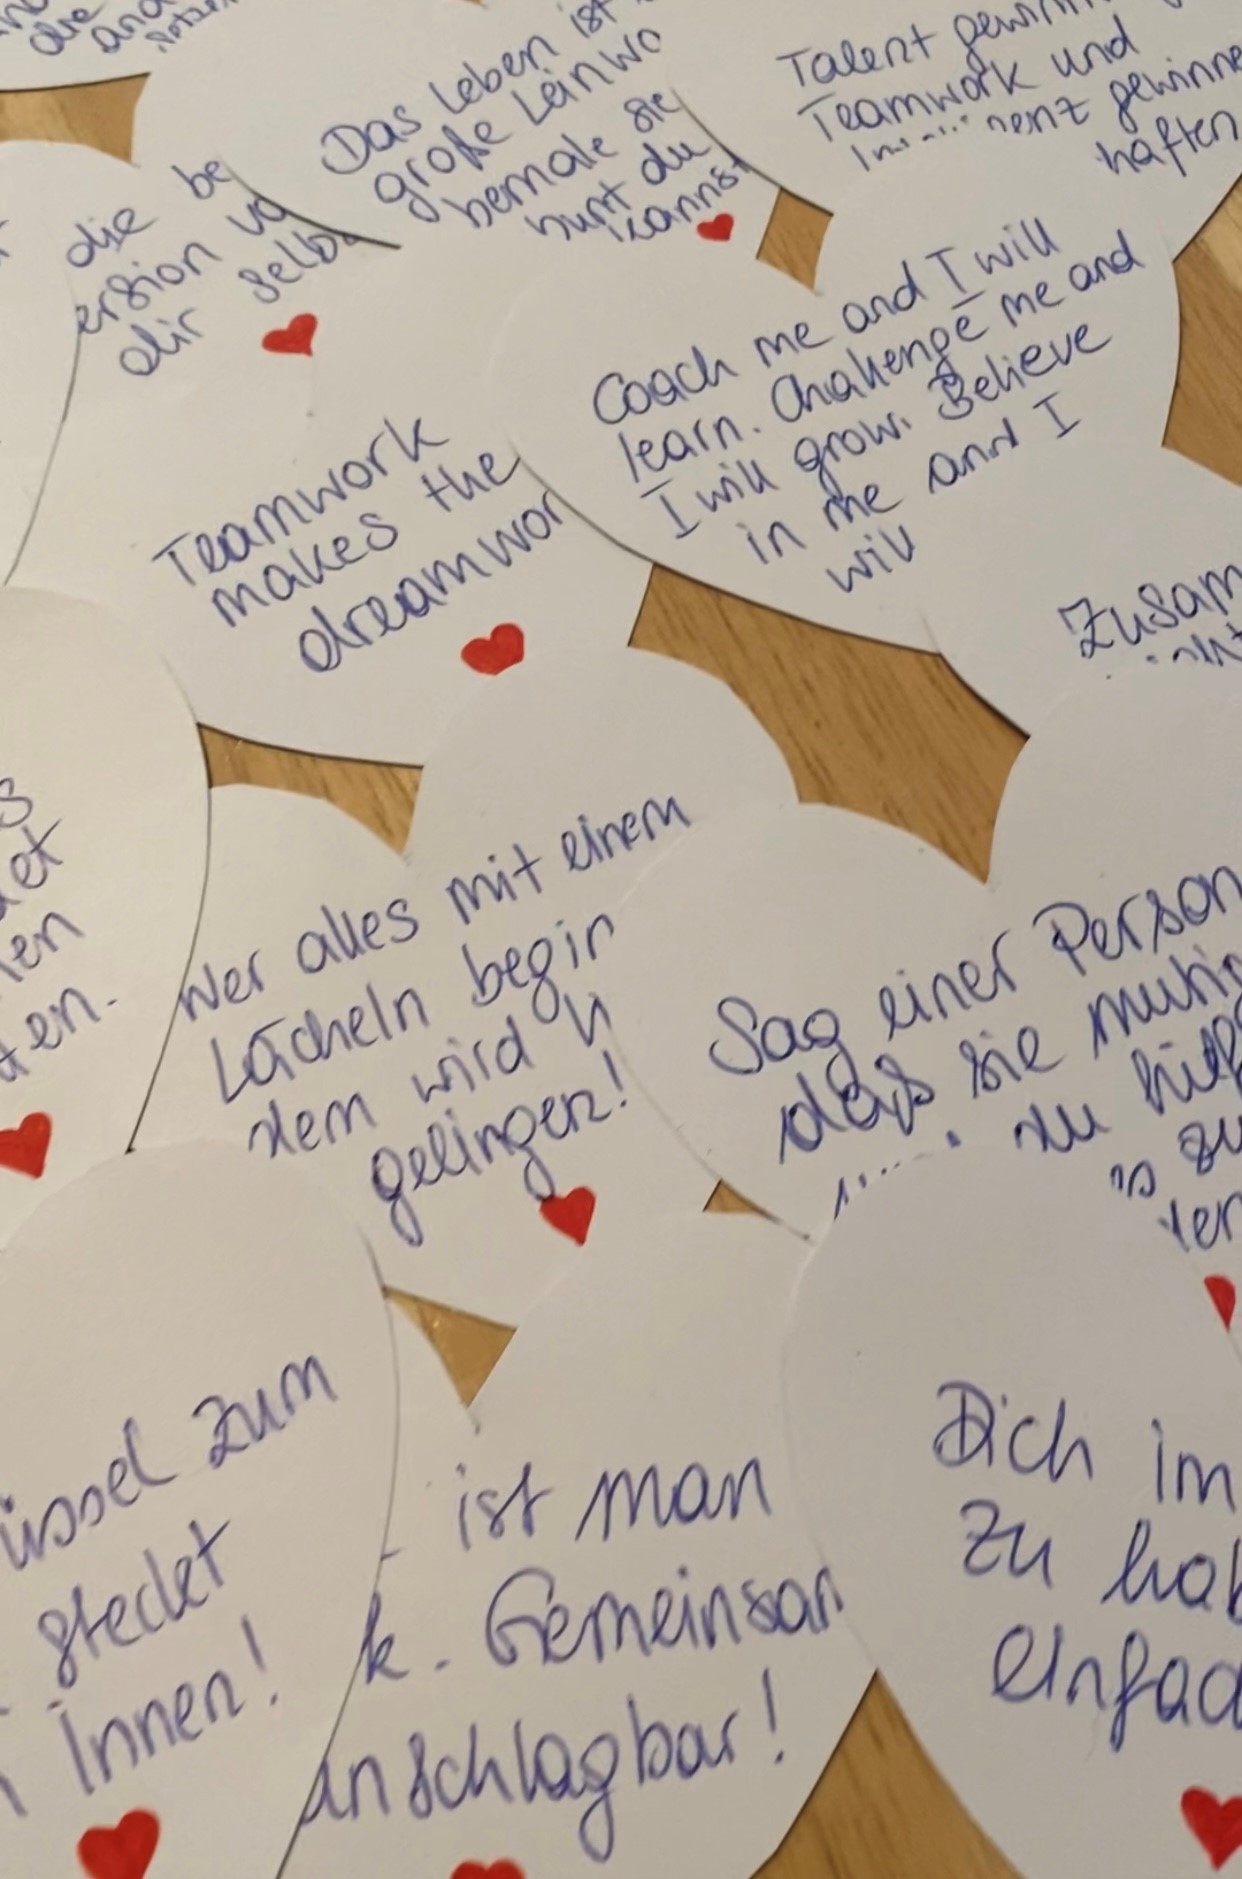 die
Das Leben ist
große Leinwa
bemale sie
bunt du
kannst
Talent gewinn
Teamwork und
gewinne
haften
die be
ersion vo
dir selbs
Coach me and I will
learn. Challenge me and
I will grow. Believe
in me and I
will
Teamwork
makes the
dreamwor
Zusam
s
et
en
en.
Wer alles mit einem
Lächeln begin
dem wird
gelingen!
Sag einer Person
dass sie mutig
du hilf
zu
ren
üssel zum
steckt
Innen!
ist man
k. Gemeinsam
unschlagbar!
Dich im
zu hab
einfac